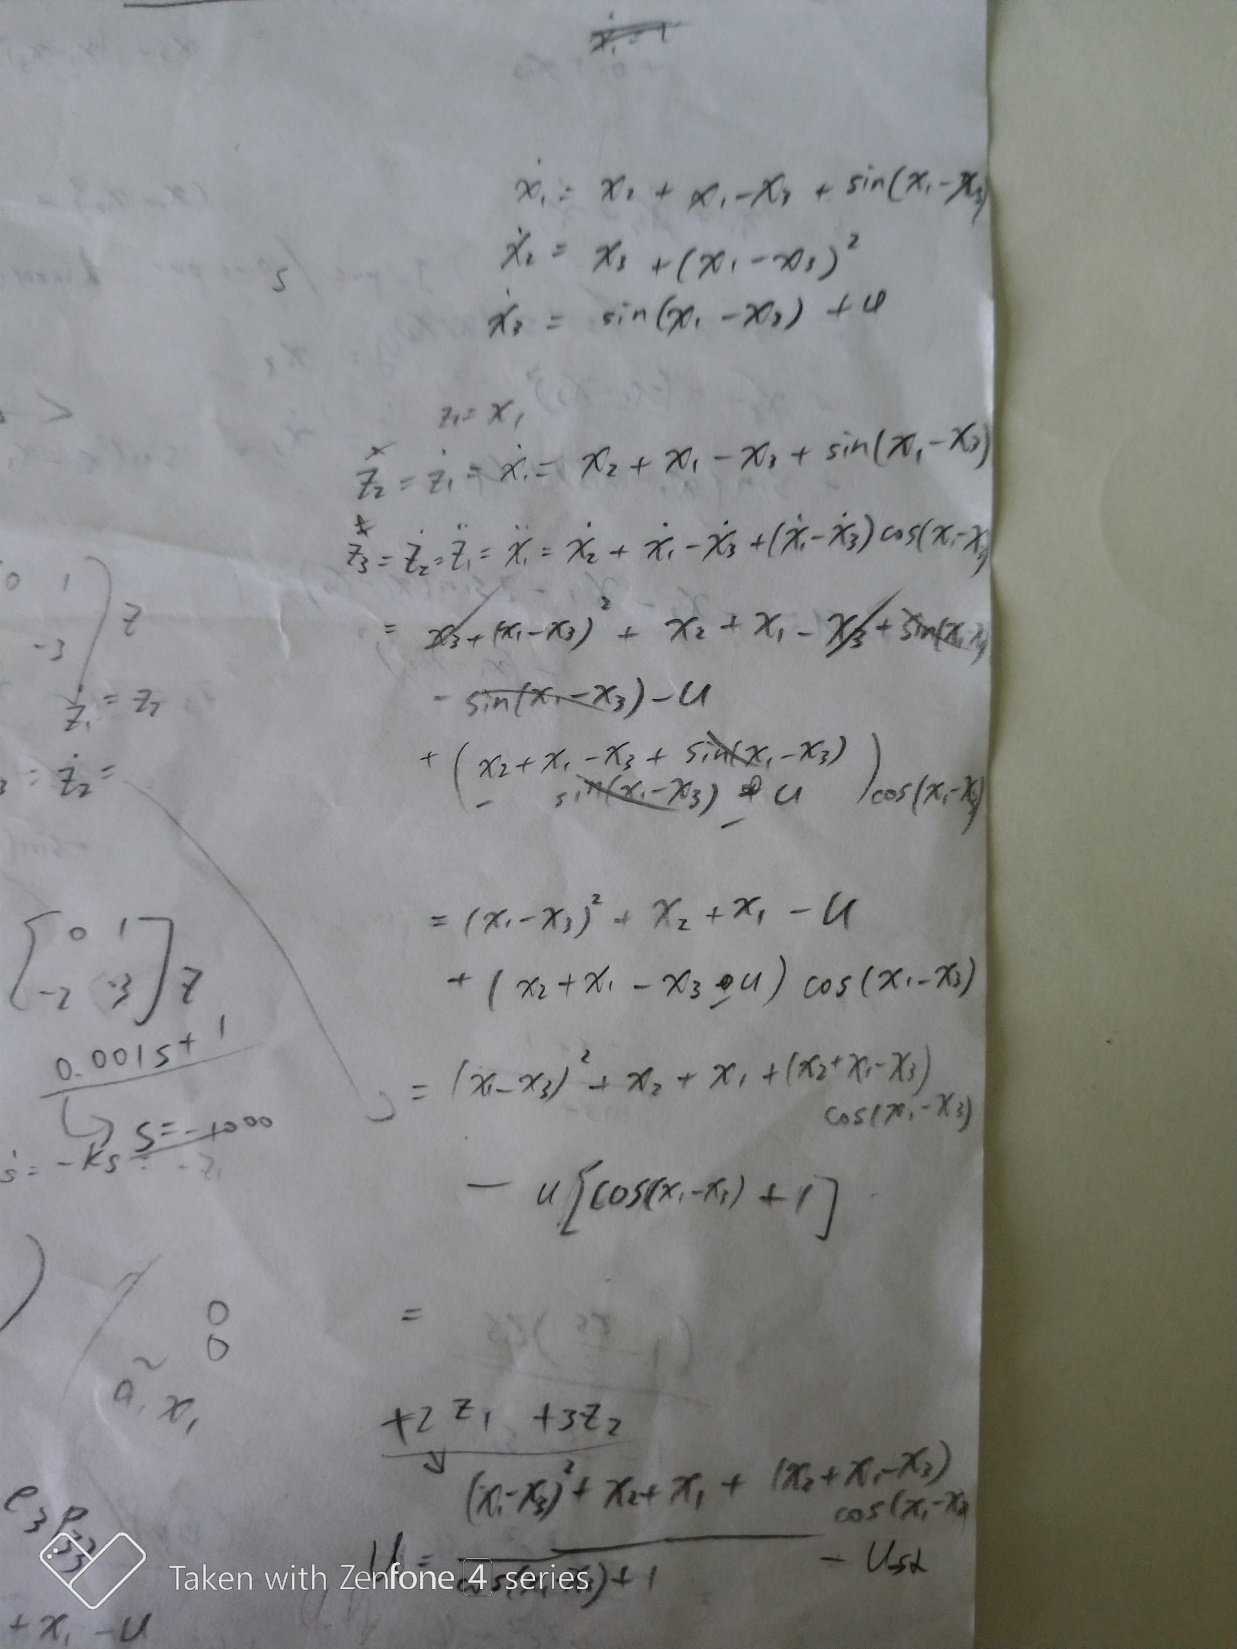 ẋ₁ = x₂ + x₁ - x₃ + sin(x₁ - x₃)
ẋ₂ = x₃ + (x₁ - x₃)²
ẋ₃ = sin(x₁ - x₃) + u
z₁ = x₁
z₂ = ż₁ = ẋ₁ = x₂ + x₁ - x₃ + sin(x₁ - x₃)
z₃ = ż₂ = z̈₁ = ẍ₁ = ẋ₂ + ẋ₁ - ẋ₃ + (ẋ₁ - ẋ₃) cos(x₁ - x₃)
= x₃ + (x₁ - x₃)² + x₂ + x₁ - x₃ + sin(x₁ - x₃)
- sin(x₁ - x₃) - u
+ ( x₂ + x₁ - x₃ + sin(x₁ - x₃)
- sin(x₁ - x₃) - u ) cos(x₁ - x₃)
= (x₁ - x₃)² + x₂ + x₁ - u
+ ( x₂ + x₁ - x₃ - u ) cos(x₁ - x₃)
= (x₁ - x₃)² + x₂ + x₁ + (x₂ + x₁ - x₃)
cos(x₁ - x₃)
- u [cos(x₁ - x₃) + 1]
=
+2 z₁ + 3z₂
(x₁ - x₃)² + x₂ + x₁ + (x₂ + x₁ - x₃)
cos(x₁ - x₃)
u = cos(x₁ - x₃) + 1 - u
0 1
-3 z
ż₁ = z₂
= ż₂ =
[ 0 1
-2 -3 ] z
0.001s + 1
s = -1000
ṡ = -ks
0
0
ã₁ x₁
+ x₁ - u
Taken with Zenfone 4 series